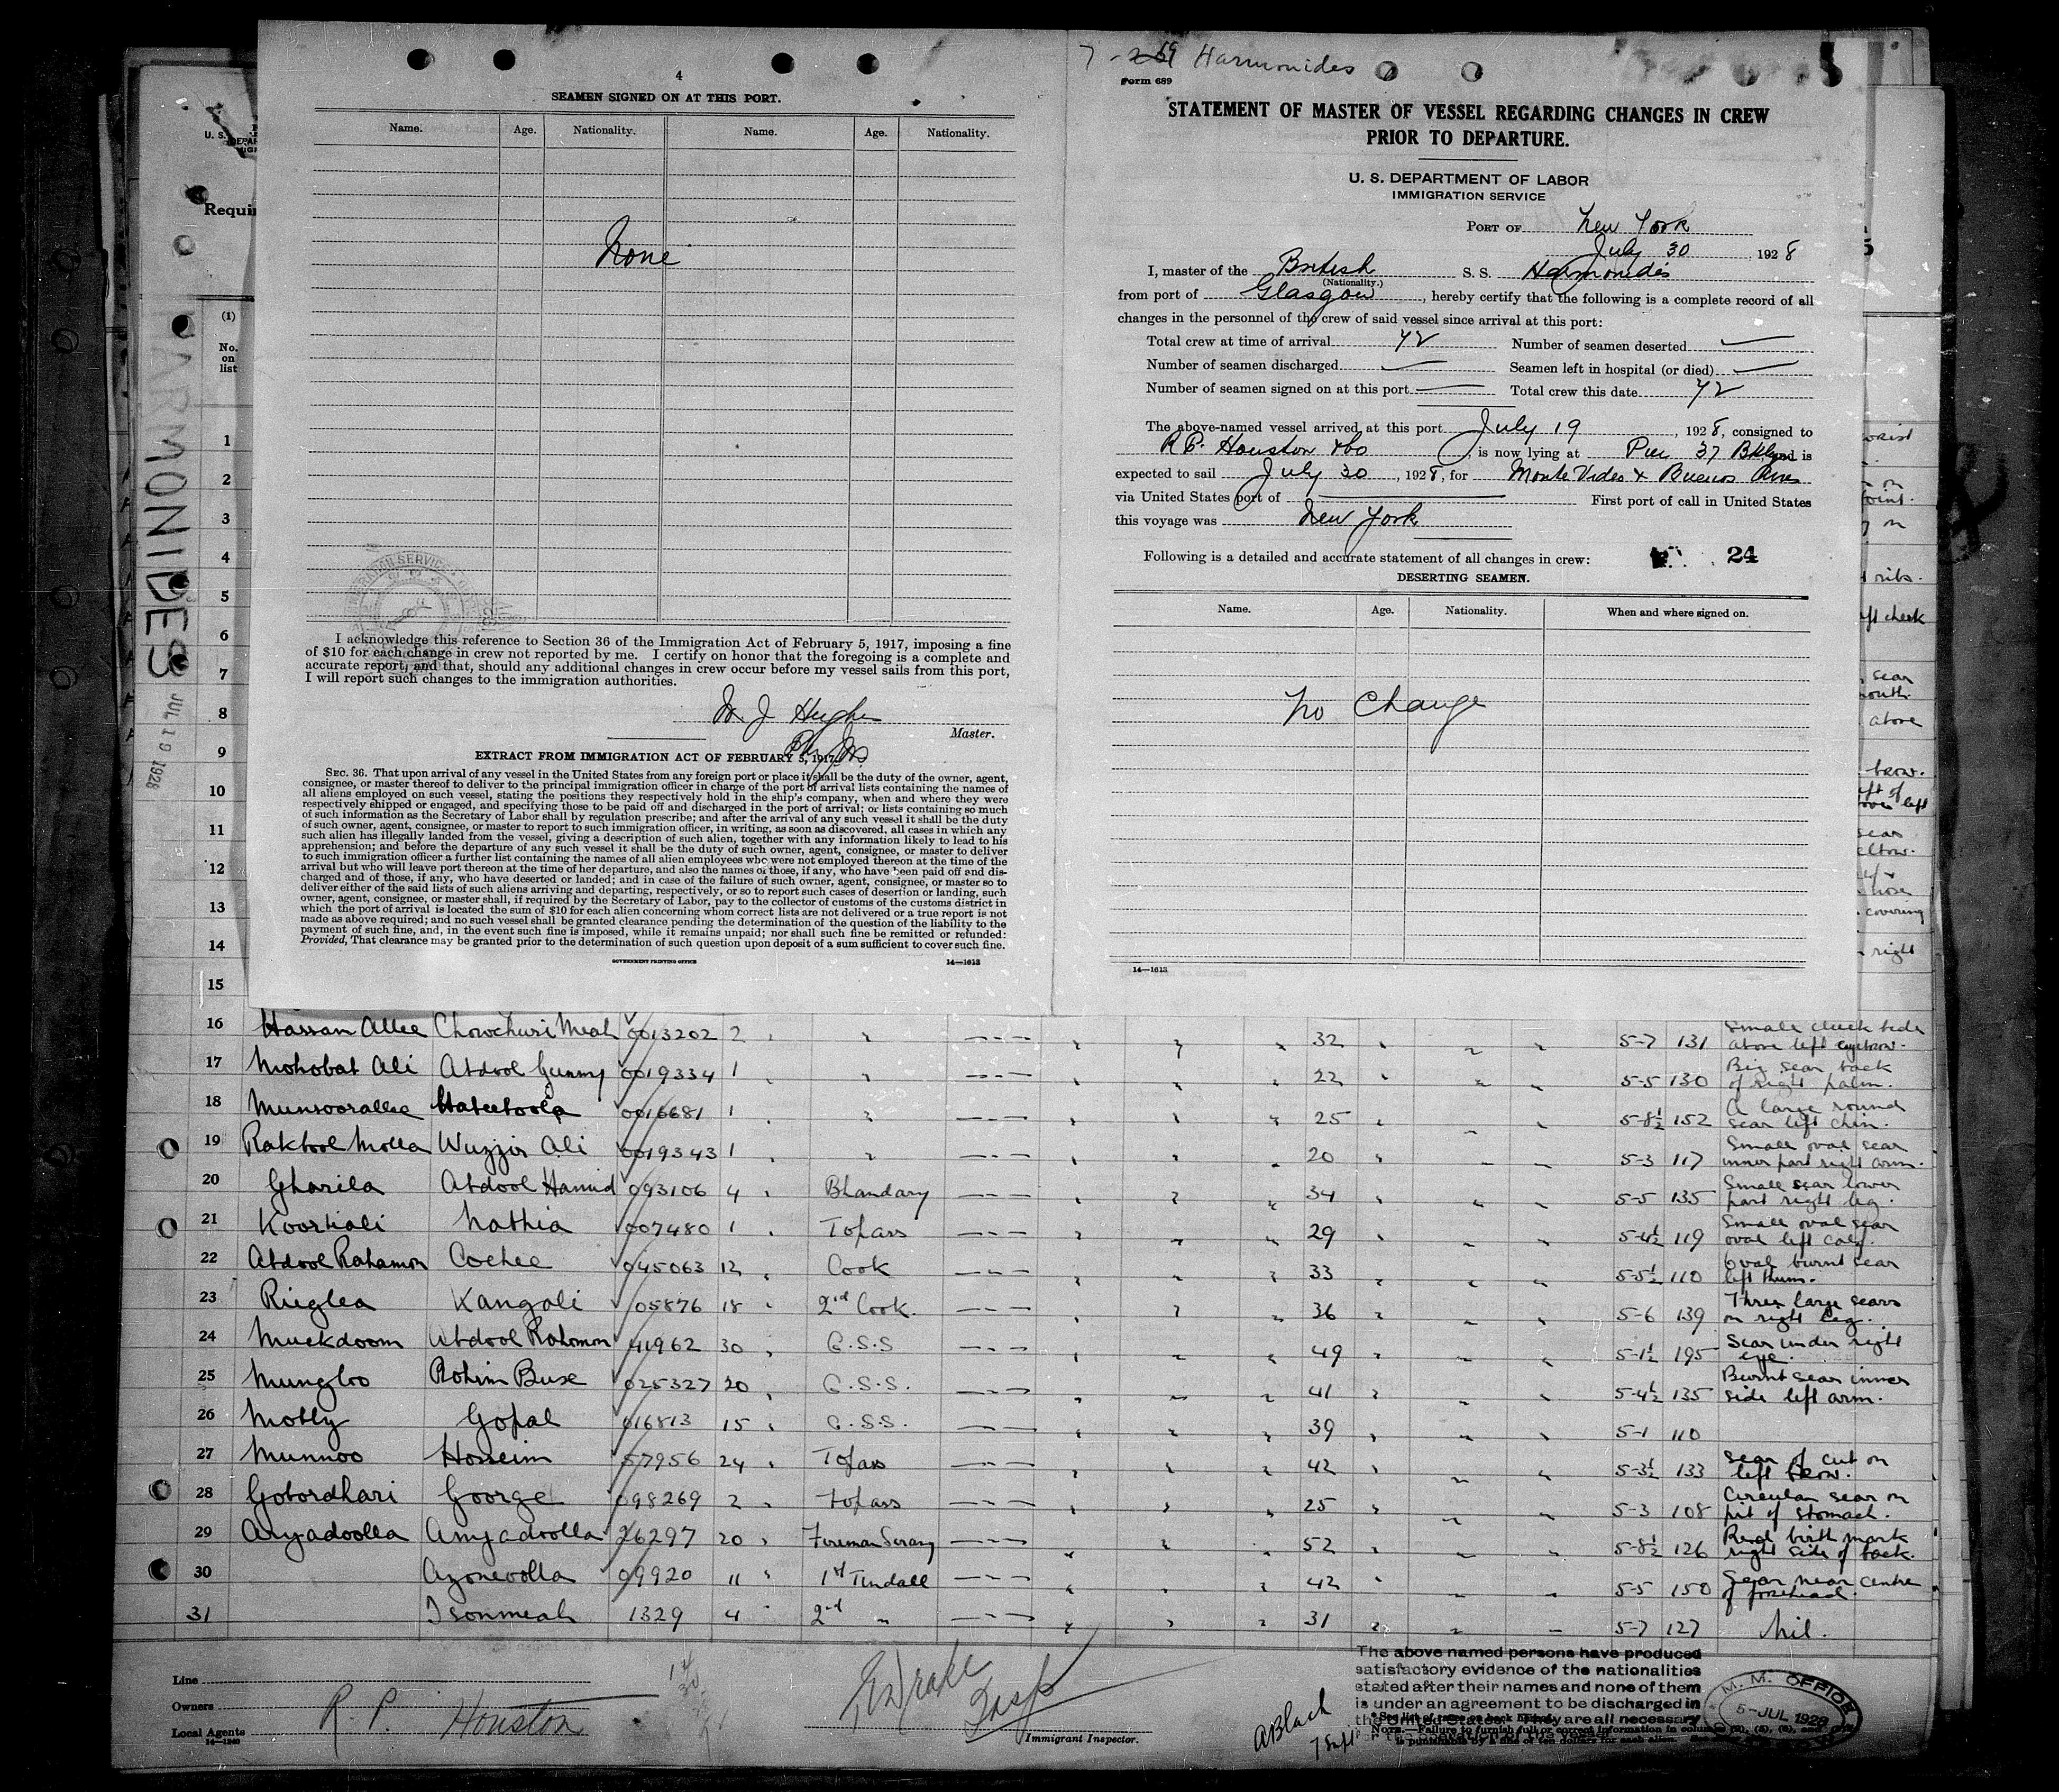 4
SEAMEN SIGNED ON AT THIS PORT.
Name. Age. Nationality. Name. Age. Nationality.
None
I acknowledge this reference to Section 36 of the Immigration Act of February 5, 1917, imposing a fine
of $10 for each change in crew not reported by me. I certify on honor that the foregoing is a complete and
accurate report, and that, should any additional changes in crew occur before my vessel sails from this port,
I will report such changes to the immigration authorities.
Master.
EXTRACT FROM IMMIGRATION ACT OF FEBRUARY 5, 1917.
SEC. 36. That upon arrival of any vessel in the United States from any foreign port or place it shall be the duty of the owner, agent,
consignee, or master thereof to deliver to the principal immigration officer in charge of the port of arrival lists containing the names of
all aliens employed on such vessel, stating the positions they respectively hold in the ship's company, when and where they were
respectively shipped or engaged, and specifying those to be paid off and discharged in the port of arrival; or lists containing so much
of such information as the Secretary of Labor shall by regulation prescribe; and after the arrival of any such vessel it shall be the duty
of such owner, agent, consignee, or master to report to such immigration officer, in writing, as soon as discovered, all cases in which any
such alien has illegally landed from the vessel, giving a description of such alien, together with any information likely to lead to his
apprehension; and before the departure of any such vessel it shall be the duty of such owner, agent, consignee, or master to deliver
to such immigration officer a further list containing the names of all alien employees who were not employed thereon at the time of the
arrival but who will leave port thereon at the time of her departure, and also the names of those, if any, who have been paid off and dis-
charged and of those, if any, who have deserted or landed; and in case of the failure of such owner, agent, consignee, or master so to
deliver either of the said lists of such aliens arriving and departing, respectively, or so to report such cases of desertion or landing, such
owner, agent, consignee, or master shall, if required by the Secretary of Labor, pay to the collector of customs of the customs district in
which the port of arrival is located the sum of $10 for each alien concerning whom correct lists are not delivered or a true report is not
made as above required; and no such vessel shall be granted clearance pending the determination of the question of the liability to the
payment of such fine, and, in the event such fine is imposed, while it remains unpaid; nor shall such fine be remitted or refunded:
Provided, That clearance may be granted prior to the determination of such question upon deposit of a sum sufficient to cover such fine.
GOVERNMENT PRINTING OFFICE 14—1613
Harmonides
Form 689
STATEMENT OF MASTER OF VESSEL REGARDING CHANGES IN CREW
PRIOR TO DEPARTURE.
U. S. DEPARTMENT OF LABOR
IMMIGRATION SERVICE
PORT OF New York
July 30, 1928
I, master of the British S. S. Harmonides
(Nationality.)
from port of Glasgow, hereby certify that the following is a complete record of all
changes in the personnel of the crew of said vessel since arrival at this port:
Total crew at time of arrival 72 Number of seamen deserted —
Number of seamen discharged — Seamen left in hospital (or died) —
Number of seamen signed on at this port — Total crew this date 72
The above-named vessel arrived at this port July 19, 1928, consigned to
R P. Houston & Co, is now lying at Pier 37 Bklyn and is
expected to sail July 30, 1928, for Monte Video & Buenos Aires
via United States port of — First port of call in United States
this voyage was New York
Following is a detailed and accurate statement of all changes in crew: 24
DESERTING SEAMEN.
Name. Age. Nationality. When and where signed on.
No Change
14—1613
HARMONIDES
JUL 19 1928
(1)
No.
on
list
1
2
3
4
5
6
7
8
9
10
11
12
13
14
15
16 Hassan Allee Chowchuri Meah 0013202 2 " 32 5-7 131 above left eyebrow.
17 Mohobat Ali Abdool Gunny 0019334 1 " 22 5-5 130 Big scar back of right palm.
18 Munsoorallee 0016681 1 " 25 5-8½ 152 A large round scar left chin.
19 Raktool Molla Wuzzir Ali 0019343 1 " 20 5-3 117 Small oval scar inner part right arm.
20 Gharila Abdool Hamid 093106 4 " Bhandary 34 5-5 135 Small scar lower part right leg.
21 Koortiali Nathia 007480 1 " Topass 29 5-4½ 119 Small oval scar oval left calf.
22 Abdool Rahamon Cochee 045063 12 " Cook 33 5-5½ 110 Oval burnt scar left thum.
23 Rieglea Kangali 05876 18 " 2nd Cook. 36 5-6 139 Three large scars on right leg.
24 Muckdoom Abdool Rohomon 41962 30 " G.S.S 49 5-1½ 195 Scar under right eye.
25 Mungloo Rohim Buxe 025327 20 " G.S.S. 41 5-4½ 135 Burnt scar inner side left arm.
26 Motly Gopal 016813 15 " G.S.S. 39 5-1 110
27 Munnoo Hosseim 57956 24 " Topass 42 5-3½ 133 Scar of cut on left brow.
28 Gobordhari George 098269 2 " Topass 25 5-3 108 Circular scar on pit of stomach.
29 Amyadoolla 26297 20 " Fireman Serang 52 5-8½ 126 Red birth mark right side of back.
30 Azonevolla 09920 11 " 1st Tindall 42 5-5 150 Scar near centre of forehead.
31 Isonmeah 1329 4 " 2nd " 31 5-7 127 Nil.
Line
Owners
Local Agents R. P. Houston
14—1240
Immigrant Inspector.
The above named persons have produced
satisfactory evidence of the nationalities
stated after their names and none of them
is under an agreement to be discharged in
the United States. They are all necessary
M. M. OFFICE
5-JUL 1928